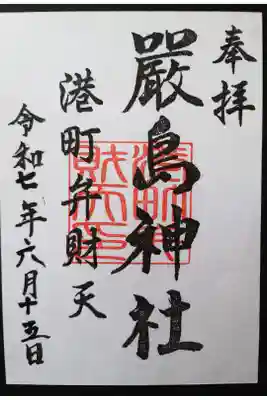 奉拝
嚴島神社
港町弁財天
令和七年六月十五日